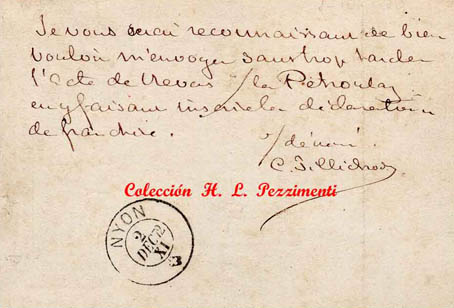 Je vous serai reconnaissant de bien
vouloir m'envoyer sans trop tarder
l'acte de
en y faisant inscrire la déclaration
de franchise.
v/ dévoué
C.
Colección H. L. Pezzimenti
NYON
2
DEC 72
XI
3